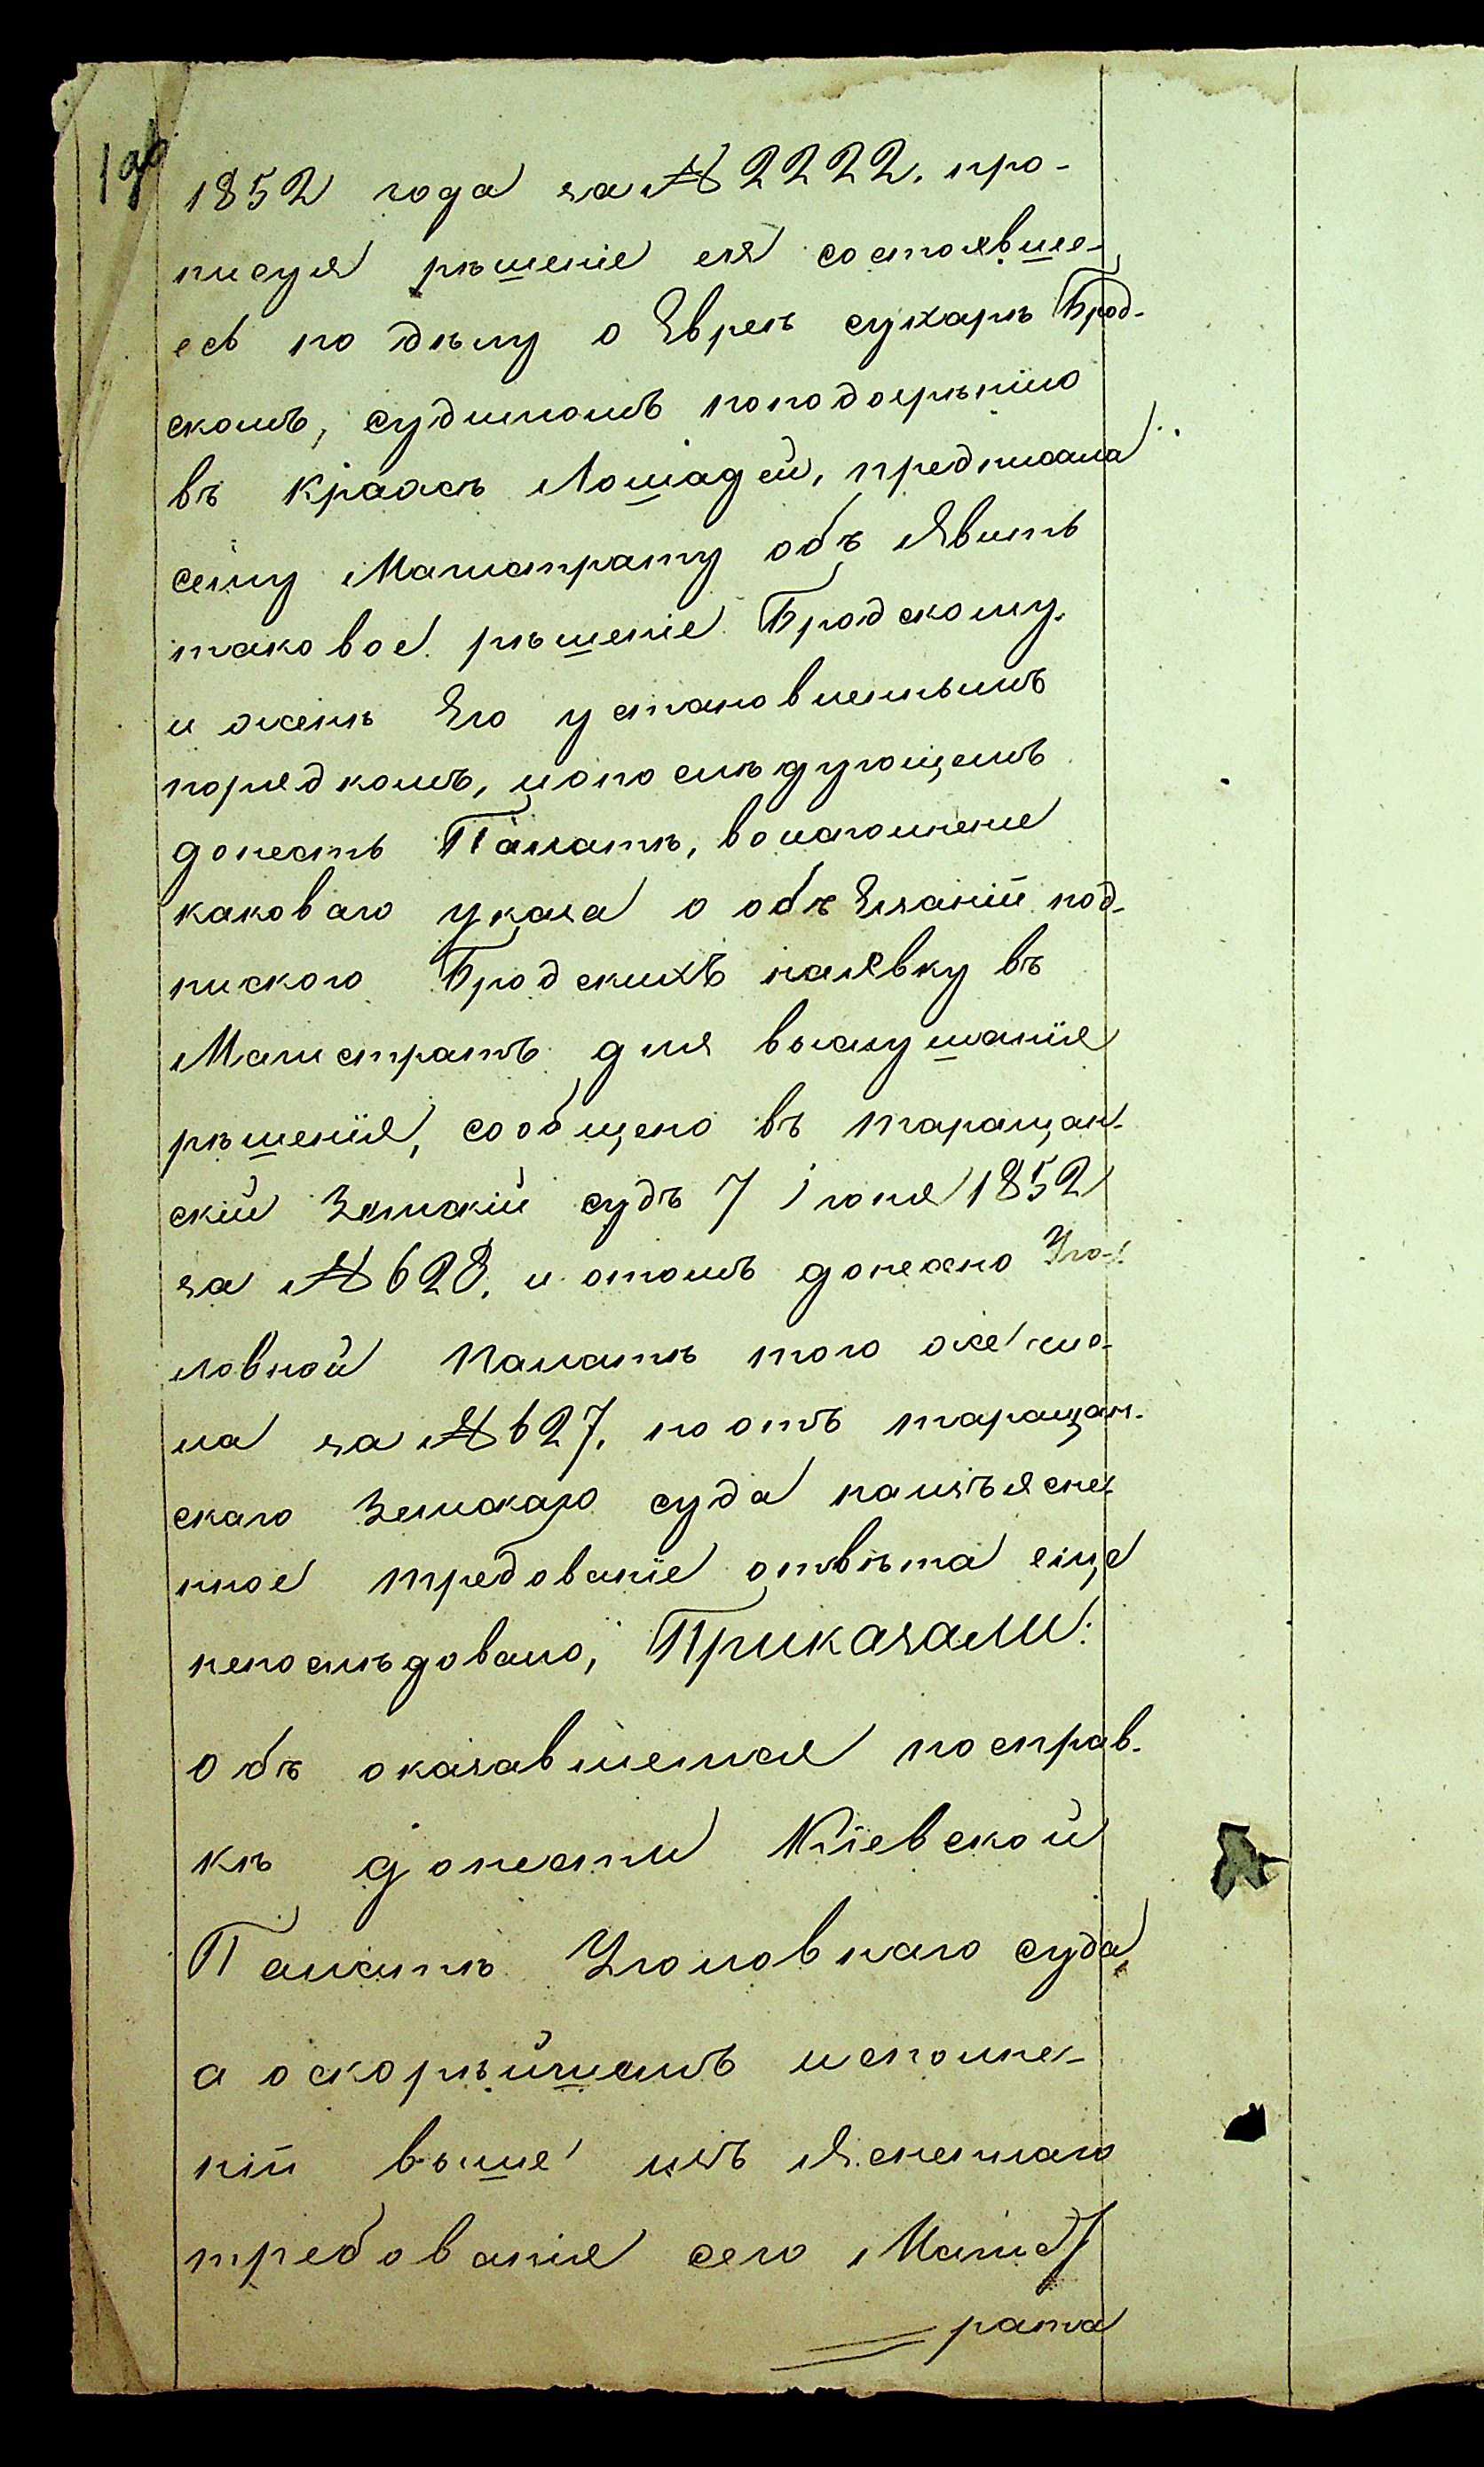 1852 года за № 2222. про-
писуя рѣшеніе ея состоявше-
есь по дѣлу о Евреѣ сухарѣ Брод-
скомъ, судимомъ поподозрѣнію
въ кражѣ Лошадей, предписала
сему Магистрату объ Явить
таковое рѣшеніе Бродскому
и женѣ Его установленнымъ
порядкомъ, ипослѣдующемъ
донесть Палатѣ, воисполнение
каковаго указа о обѣ Езаніи под-
пискою Бродскихъ наявку въ
Магистратъ для выслушанія
рѣшенія, сообщено въ таращан-
скій Земскій судъ 7 Іюня 1852
за № 628. и отомъ донесено Уго-
ловной Палатѣ того же чис-
ла за № 627. но отъ таращан-
скаго Земскаго суда наизъясне-
нное требованіе отвѣта еще
непослѣдовало, Приказали:
Объ оказавшемся посправ-
кѣ донести Кіевской
Палатѣ Уголовнаго суда,
а оскорѣйшемъ исполне-
ніи выше изъ Ясненнаго
требованія сего Магист
рата